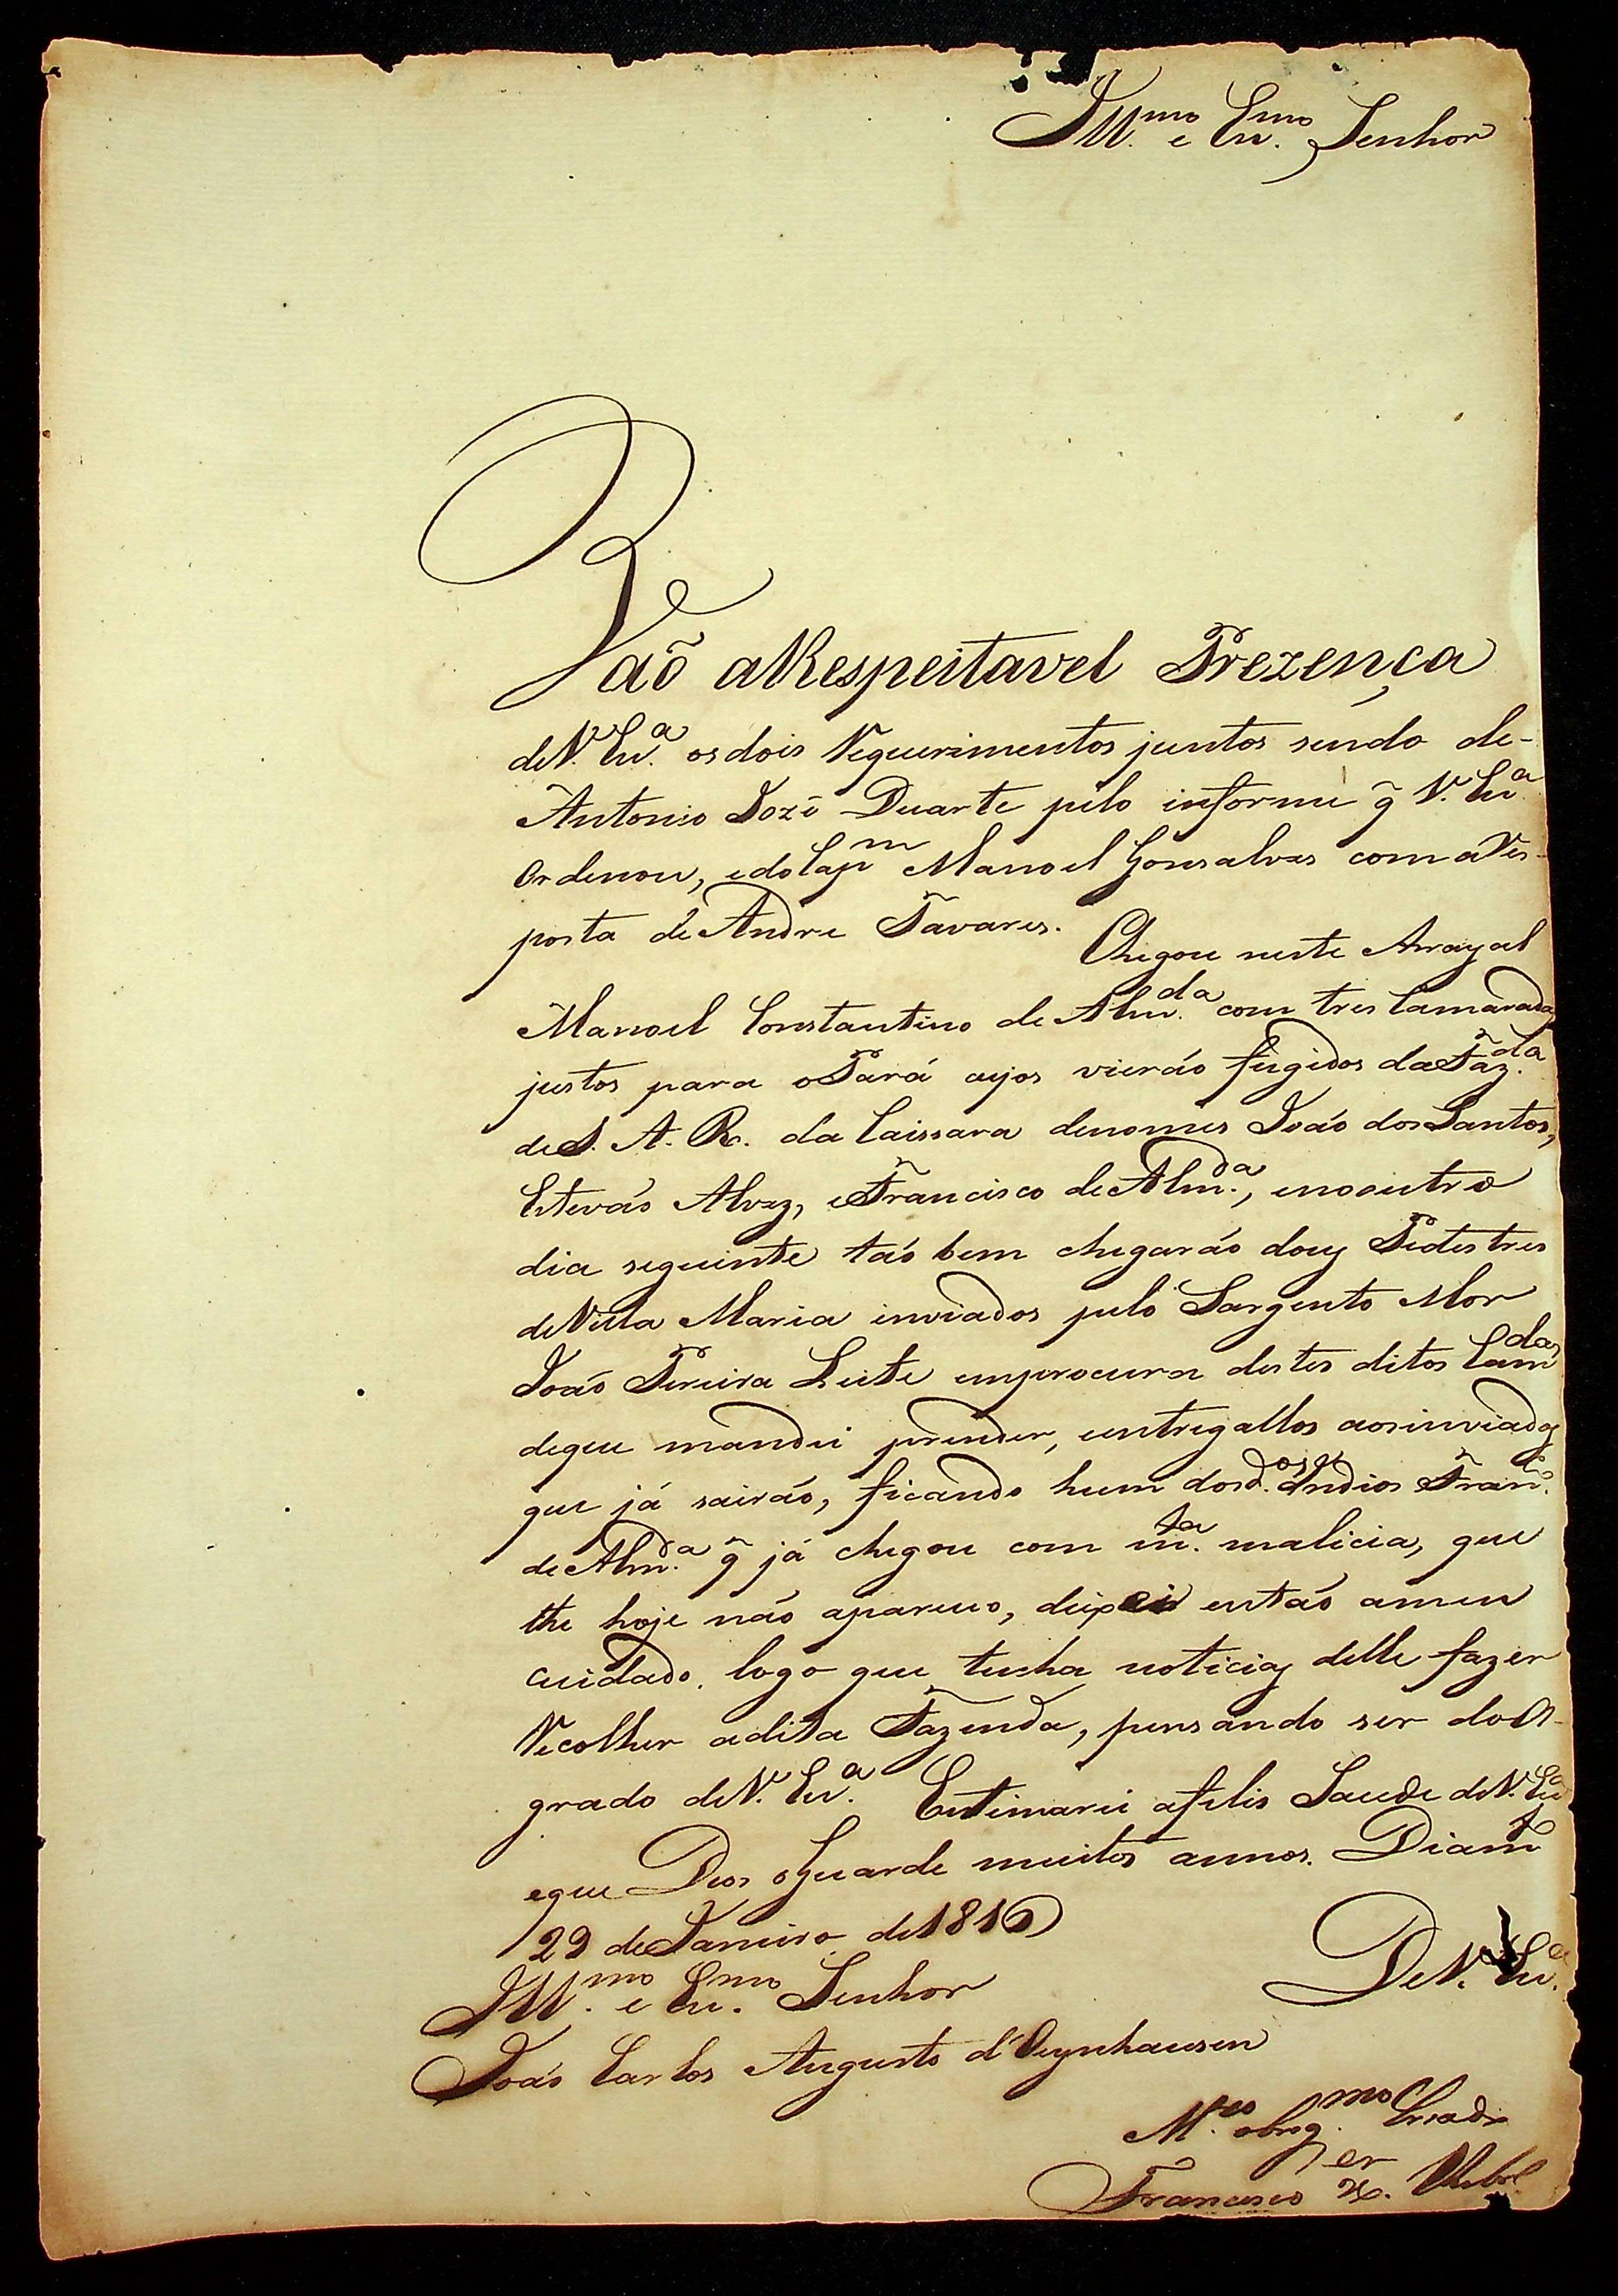 Ill.mo e Ex.mo Senhor
Vaõ aRespeitavel Prezença
deV. Ex.a os dois Requerimentos juntos sendo de-
Antonio Jozé Duarte pelo informe q̃ V. Ex.a
Ordenou, edo Capm Manoel Gonsalves com a Res-
posta de Andre Tavares. Chegou neste Arrayal
Manoel Constantino de Alm.da com tres Camaradas
justos para oPará cujos vieráo fugidos da Faz.da
de S. A. R. da Caissara denomes Joáo dos Santos,
Esteváo Alvez, eFrancisco de Alm.da, enooutro
dia seguinte táo bem chegaráo douz Pedestres
deVilla Maria inviados pelo Sargento Mor
Joáo Pereira Leite emprocura destes ditos Camdas
deque mandei prender, eentregallos aosinviados
que já sairáo, ficando hum dosd.os Indios Fran.co
de Alm.da q̃ já chegou com m.ta malicia, que
the hoje náo apareceo, deixei entáo ameu
cuidado logo que tenha noticias delle fazer
Recolher adita Fazenda, pensando ser doA-
grado deV. Ex.a Estimarei afelis Saude deV. Ex.a
eque Deos oGuarde muitos annos. Diam.to
29 deJaneiro de1816
DeV. Ex.a
Ill.mo e Ex.mo Senhor
Joáo Carlos Augusto d'Oeynhausen
M.to obrg.mo Criado
Francisco X.er